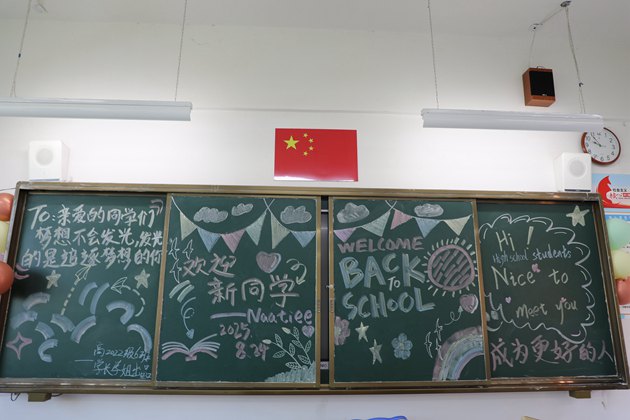 To:亲爱的同学们
梦想不会发光,发光
的是追逐梦想的你
高2022级6班
学长学姐
欢迎
新同学
Naatiee
2025
8.29
WELCOME
BACK
TO
SCHOOL
Hi!
High school students
Nice to
meet you
成为更好的人